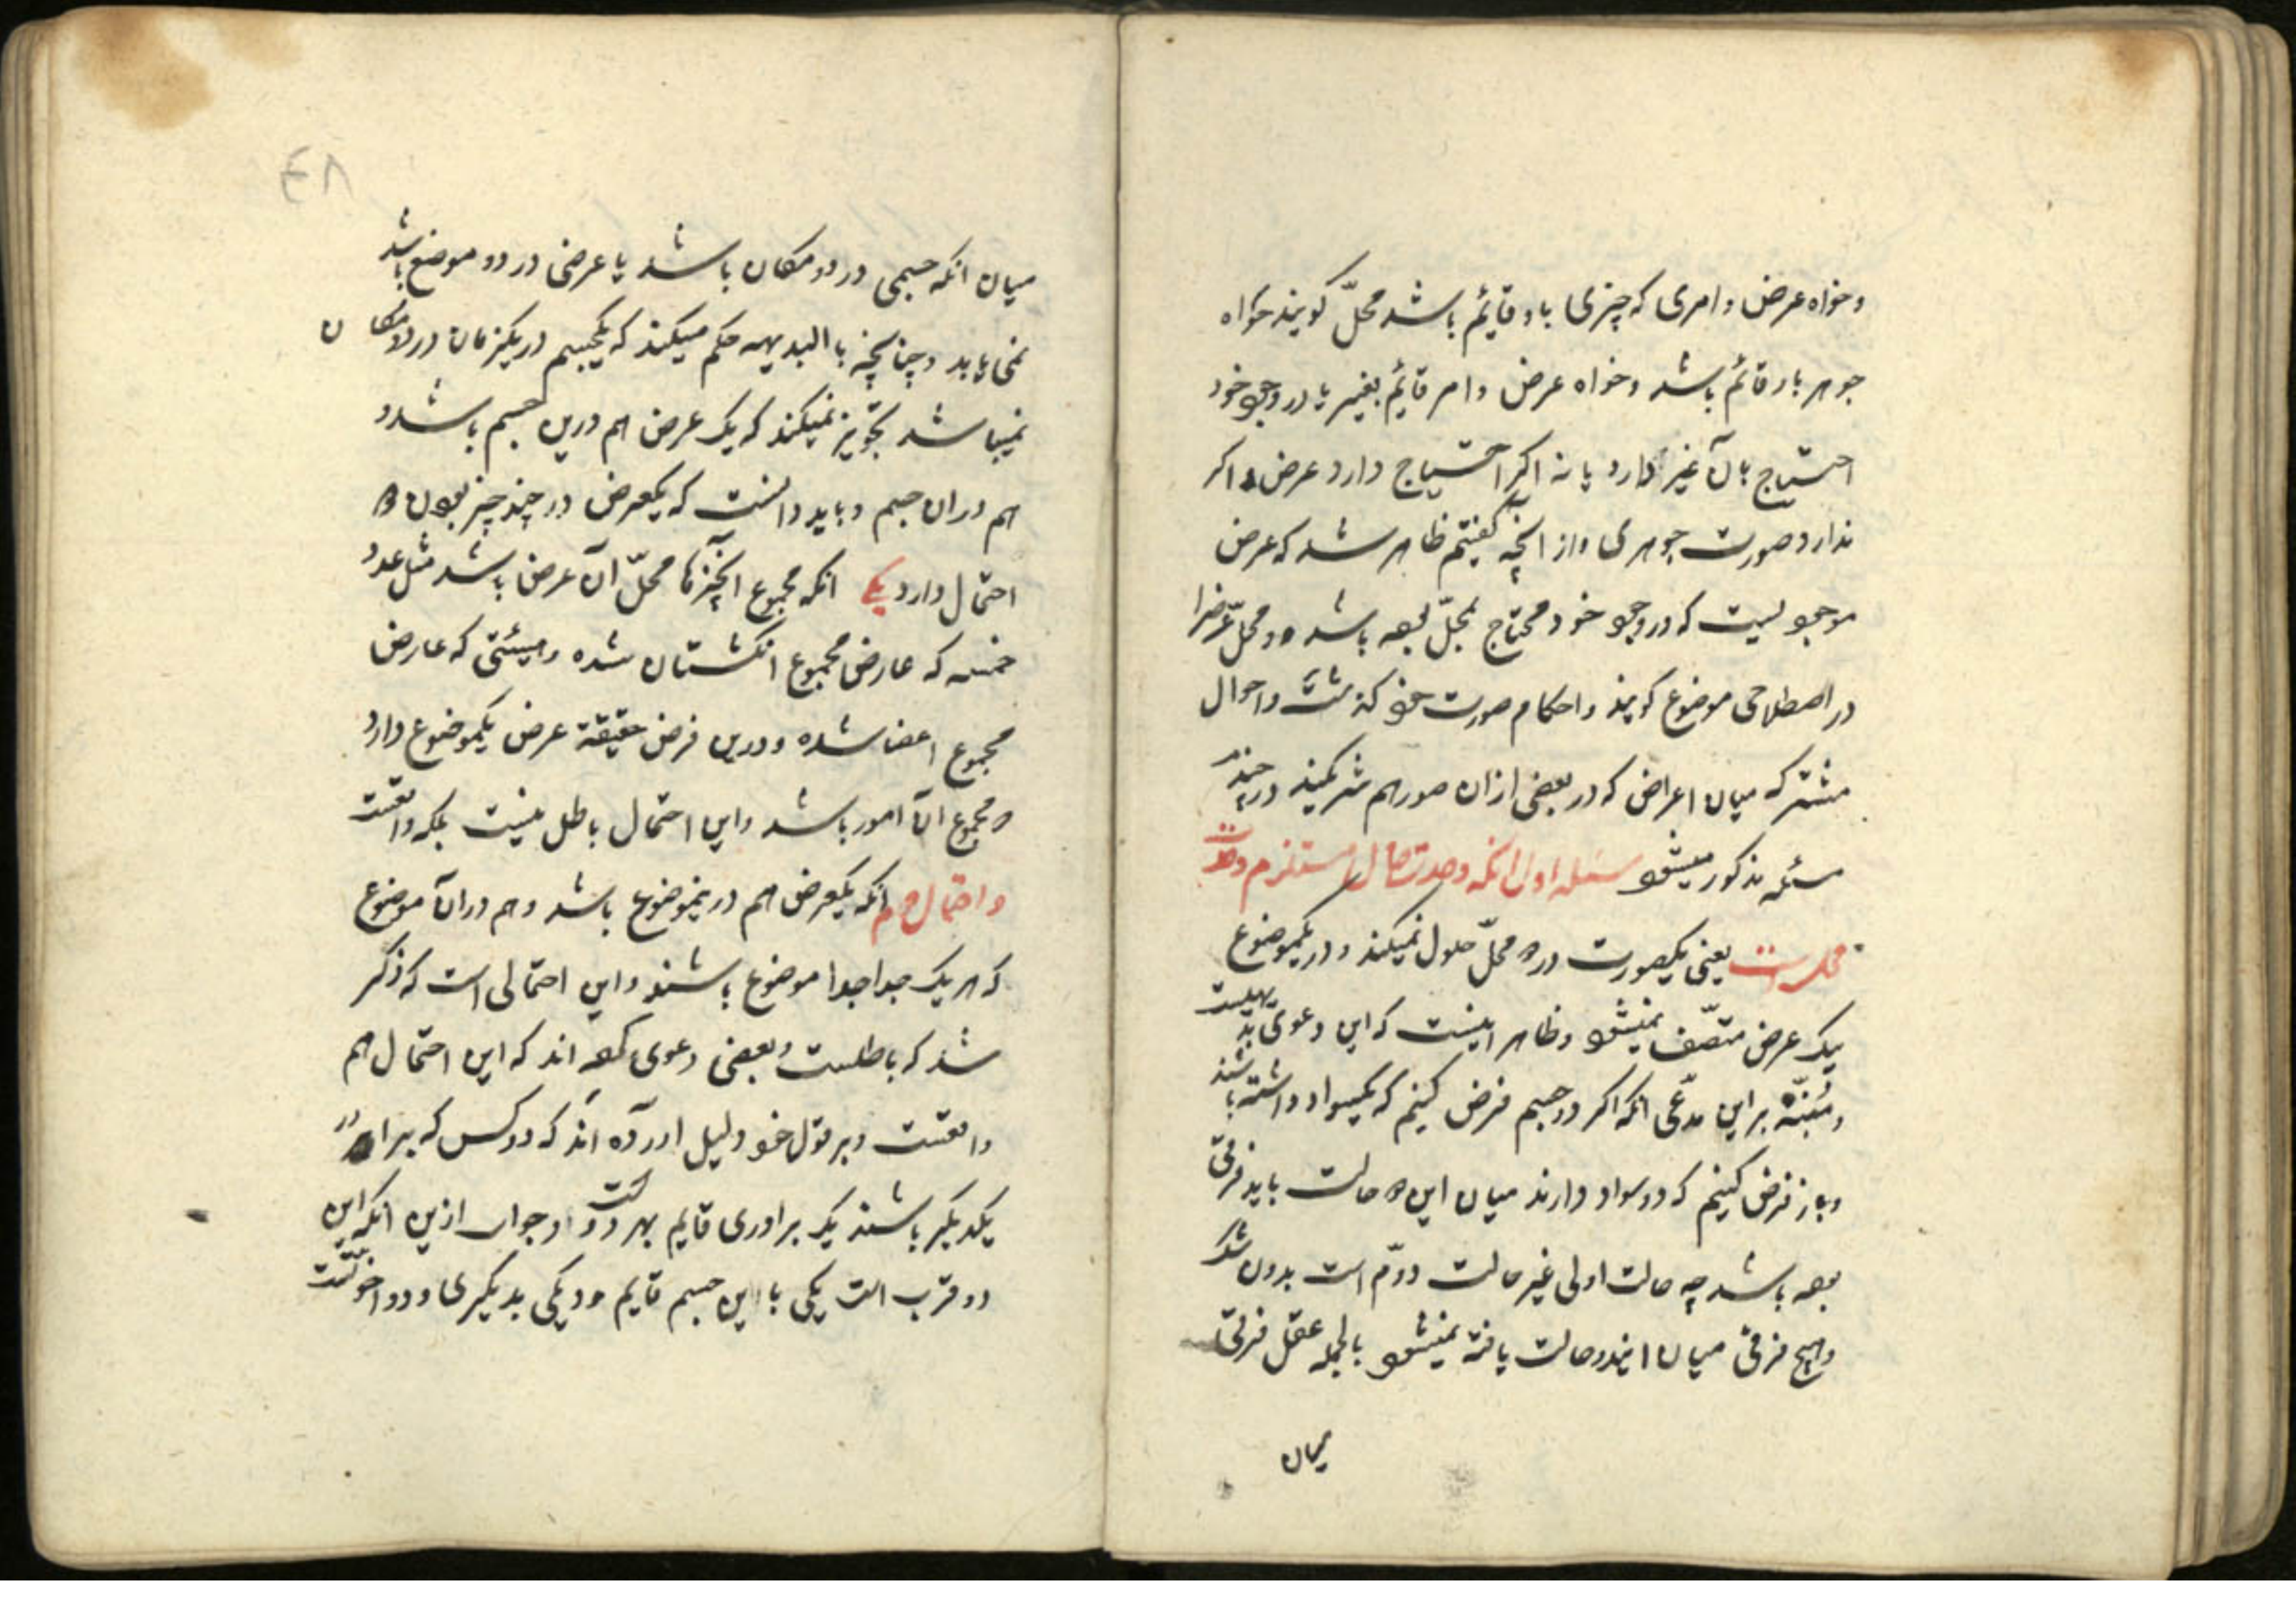 وخواه عرض وامری که چیزی باو قایم باشد محلّ کویند خواه
جوهر باو قائم باشد وخواه عرض وامر قایم بغیر یا در وجود خود
احتیاج بآن غیر دارد یا نه اکر احتیاج دارد عرض و اکر
ندارد صورت جوهری واز انچه کفتیم ظاهر شد که عرض
موجودیست که در وجود خود محتاج بمحلّ بوده باشد و محلّ عرضرا
در اصطلاحی موضوع کویند واحکام صورت خود کذشت واحوال
مشترکه میان اعراض که در بعضی ازان صور هم شریکند در چند
مسئله مذکور میشود مسئله اول انکه وحدت حالّ مستلزم وحدت
محلست یعنی یکصورت در دو محلّ حلول نمیکند و در یکموضوع
یک عرض متّصف نمیشود وظاهر اینست که این دعوی بدیهیست
ومنبّه براین مدّعی انکه اکر دو جسم فرض کنیم که یکسواد داشته باشند
وباز فرض کنیم که دو سواد دارند میان این دو حالت باید فرقی
بوده باشد چه حالت اولی غیر حالت دوّم است بدون شک
وهیچ فرقی میان ایندو حالت یافته نمیشود بالجمله عقل فرقی
میان
میان انکه جسمی در دو مکان باشد یا عرضی در دو موضع باشد
نمی یابد وچنانچه بالبدیهه حکم میکند که یکجسم در یکزمان در دو مکان
نمیباشد تجویز نمیکند که یک عرض هم درین جسم باشد و
هم دران جسم وباید دانست که یکعرض در چند چیز بودن دو
احتمال دارد یکی انکه مجموع انچیزها محلّ آن عرض باشد مثل عدد
خمسه که عارض مجموع انکشتان شده وهیئتی که عارض
مجموع اعضا شده ودرین فرض حقیقة عرض یکموضوع دارد
که مجموع ان امور باشد واین احتمال باطل نیست بلکه واقعست
واحتمال دوم انکه یکعرض هم دریموضوع باشد وهم دران موضوع
که هر یک جدا جدا موضوع باشند واین احتمالی است که ذکر
شد که باطلست وبعضی دعوی کرده اند که این احتمال هم
واقعست وبر قول خود دلیل اورده اند که دو کس که برادر
یکدیکر باشند یک برادری قایم بهر دو است وجواب ازین انکه این
دو قرب است یکی با این جسم قایم و دیکی بدیکری و دو اخوتست